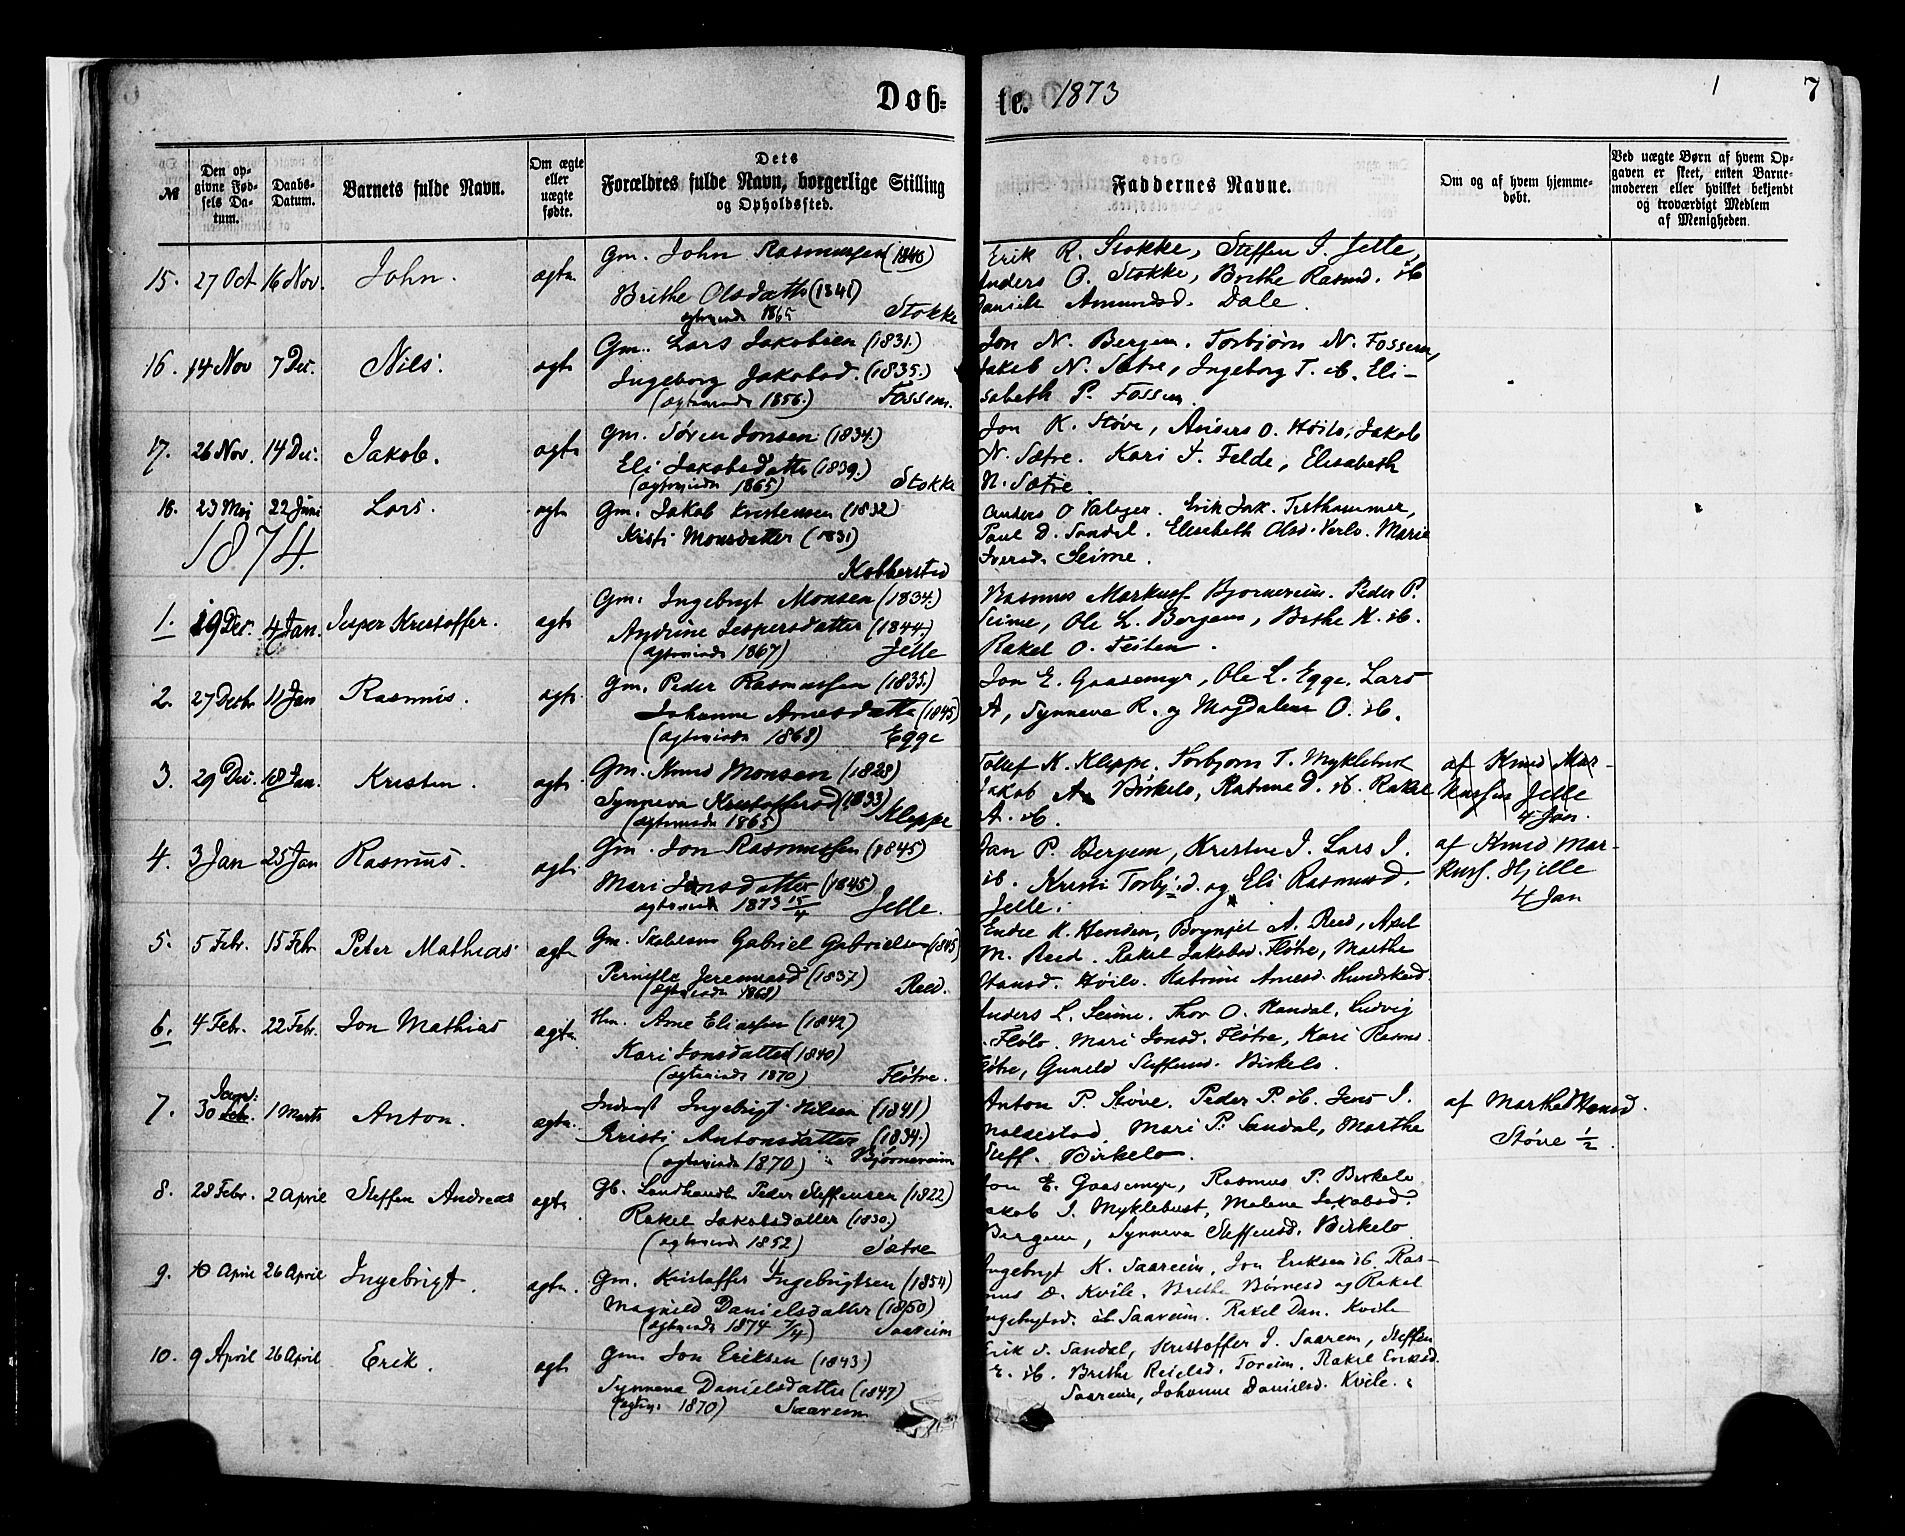 Døb- te. 1873 1 7
№ Den opgivne Fødsels Datum. Daabs-Datum. Barnets fulde Navn. Om ægte eller uægte fødte. Dets Forældres fulde Navn, borgerlige Stilling og Opholdssted. Faddernes Navne. Om og af hvem hjemmedøbt. Ved uægte Børn af hvem Opgaven er skeet, enten Barnemoderen eller hvilket bekjendt og troværdigt Medlem af Menigheden.
15. 27 Oct 16 Nov. John. ægte Gm. John Rasmussen (1840) Erik R. Stokke, Steffen J. Jelle,
Brithe Olsdatter (1841) Anders O. Stokke, Brithe Rasmd. ib.
ægteviede 1865 Stokke Amundsd. Dale.
16. 14 Nov 7 Dec. Nils. ægte Gm. Lars Jakobsen (1831.) Jon N. Bergem. Torbjørn N. Fossem,
Ingeborg Jakobsd. (1835.) Jakob N. Sætre, Ingeborg T. ib. Eli-
(ægteviede 1856.) Fossem. sabeth P. Fossem.
17. 26 Nov. 14 Dec. Jakob. ægte Gm. Søren Jonsen (1834.) Jon K. Støve, Anders O. Hoilo, Jakob
Eli Jakobsdatter (1839.) N. Sætre. Kari T. Felde, Elisabeth
(ægteviede 1865) Stokke N. Sætre.
18. 23 Mai 22 Juni Lars. ægte Gm. Jakob Kristensen (1832) Anders O. Erik Jak.
1874. Kristi Monsdatter (1831) Paul D. Sandal. Elisebeth Olsd. Marie
Kobberstad Iversd. Seime.
1. 19 Dec. 4 Jan. Jesper Kristoffer. ægte Gm. Ingebrigt Monsen (1834.) Rasmus Markuss. Bjørnereim. Peder P.
Andrine Jespersdatter (1844.) Seime, Ole L. Bergem, Brithe K. ib.
(ægteviede 1867) Jelle Rakel O. Feiten.
2. 27 Decbr 11 Jan Rasmus. ægte Gm. Peder Rasmussen (1835.) Jon E. Gaasemyr, Ole L. Egge. Lars
Johanne Arnesdatter (1845) A, Synneva R. og Magdalene O. ib.
(ægteviede 1868) Egge
3. 29 Dec. 18 Jan. Kristen. ægte Gm. Knud Monsen (1828) Tollef K. Kleppe. Torbjørn T. Myklebust af Knud Mar-
Synneva Kristoffersd (1833) Jakob A. Birkelo, Rasmine D. ib. Rakel kussen Jelle
(ægteviede 1865) Kleppe A. ib. 4 Jan.
4. 3 Jan 25 Jan Rasmus. ægte Gm. Jon Rasmussen (1845) Jan P. Bergem, Kristen J. Lars J. af Knud Mar-
Mari Jonsdatter (1845) ib. Kristi Torbj.d. og Eli Rasmusd. kuss. Hjelle
ægteviede 1873 15/4 Jelle. Jelle. 4 Jan
5. 5 Febr. 15 Febr Peter Mathias ægte Gm. Gabriel Gabrielsen (1845) Endre K. Henden, Brynjel A. Reed, Axel
Pernille Jeremiasd (1837) M. Reed. Rakel Jakobsd. Fløtre, Marthe
(ægteviede 1868) Reed. Hansd. Høilo. Katrine Arnesd. Hundskard
6. 4 Febr. 22 Febr. Jon Mathias ægte Hm. Arne Eliassen (1842) Anders L. Seime. Thor O. Handal, Ludvig
Kari Jonsdatter (1840) Fløtre, Kari Rasmd.
(ægteviede 1870) Fløtre. Fløtre, Gunild Steffensd. Birkelo.
7. 30 Janr: 1 Marts Anton. ægte Inderst Ingebrigt Nilsen (1841) Anton P. Støve. Peder P. ib. Jens J. af Marthe Hansd.
Kristi Antonsdatter (1834.) Mari P. Sandal, Marthe Støve 1/2.
(ægteviede 1870) Bjørnereim Steff. Birkelo.
8. 28 Febr. 2 April Steffen Andreas ægte Gb. Landhandler Peder Steffensen (1822) Jon E. Gaasemyr, Rasmus P. Birkelo
Rakel Jakobsdatter (1830.) Jakob J. Myklebust, Malene Jakobsd.
(ægteviede 1852) Sætre Bergem, Synneva Steffensd. Birkelo
9. 10 April 26 April Ingebrigt. ægte. Gm. Kristoffer Ingebrigtsen (1854) Ingebrigt K. Saareim. Jon Eriksen ib. Ras-
Magnild Danielsdatter (1850) mus D. Kvile. Brithe Børnesd og Rakel
(ægteviede 1874 7/4) Saareim Ingebrigtsd. ib Saareim. Rakel Dan. Kvile
10. 9 April 26 April Erik. ægte Gm Jon Eriksen (1843.) Erik S. Sandal, Kristoffer J. Saarem, Steffen
Synneva Danielsdatter (1847) E. ib. Brithe Reielsd. Toreim. Rakel Eriksd.
(ægtev. 1870) Saareim Saareim, Johanne Danielsd. Kvile.